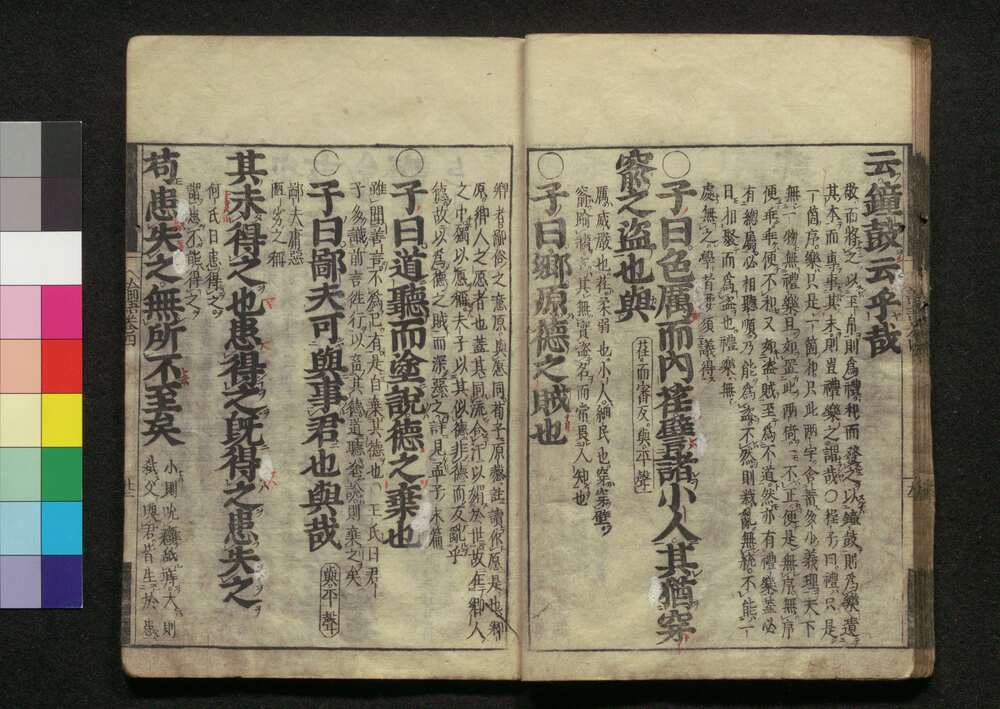 云鐘鼓云乎哉
敬而將之以玉帛則為禮和而發之以鐘鼓則為樂遺
其本而專事其末則豈禮樂之謂哉○程子曰禮只是
一箇序樂只是一箇和只此兩字含蓄多少義理天下
無一物無禮樂且如置此兩椅一不正便是無序無序
便乖乖便不和又如盜賊至為不道然亦有禮樂蓋必
有總屬必相聽順乃能為盜不然則叛亂無統不能一
日相聚而為盜也禮樂無
處無之學者要須識得
○子曰色厲而內荏譬諸小人其猶穿
窬之盜也與
荏而審反與平聲
厲威嚴也荏柔弱也小人細民也穿穿壁
窬踰牆言其無實盜名而常畏人知也
○子曰鄉原德之賊也
鄉者鄙俗之意原與愿同荀子原愨註讀作愿是也鄉
原鄉人之愿者也蓋其同流合汙以媚於世故在鄉人
之中獨以愿稱夫子以其似德非德而反亂乎
德故以為德之賊而深惡之詳見孟子末篇
○子曰道聽而塗說德之棄也
雖聞善言不為己有是自棄其德也○王氏曰君
子多識前言往行以畜其德道聽塗說則棄之矣
○子曰鄙夫可與事君也與哉
與平聲
鄙夫庸惡
陋劣之稱
其未得之也患得之既得之患失之
何氏曰患得之
謂患不能得之
苟患失之無所不至矣
小則吮癰舐痔大則
弒父與君皆生於患